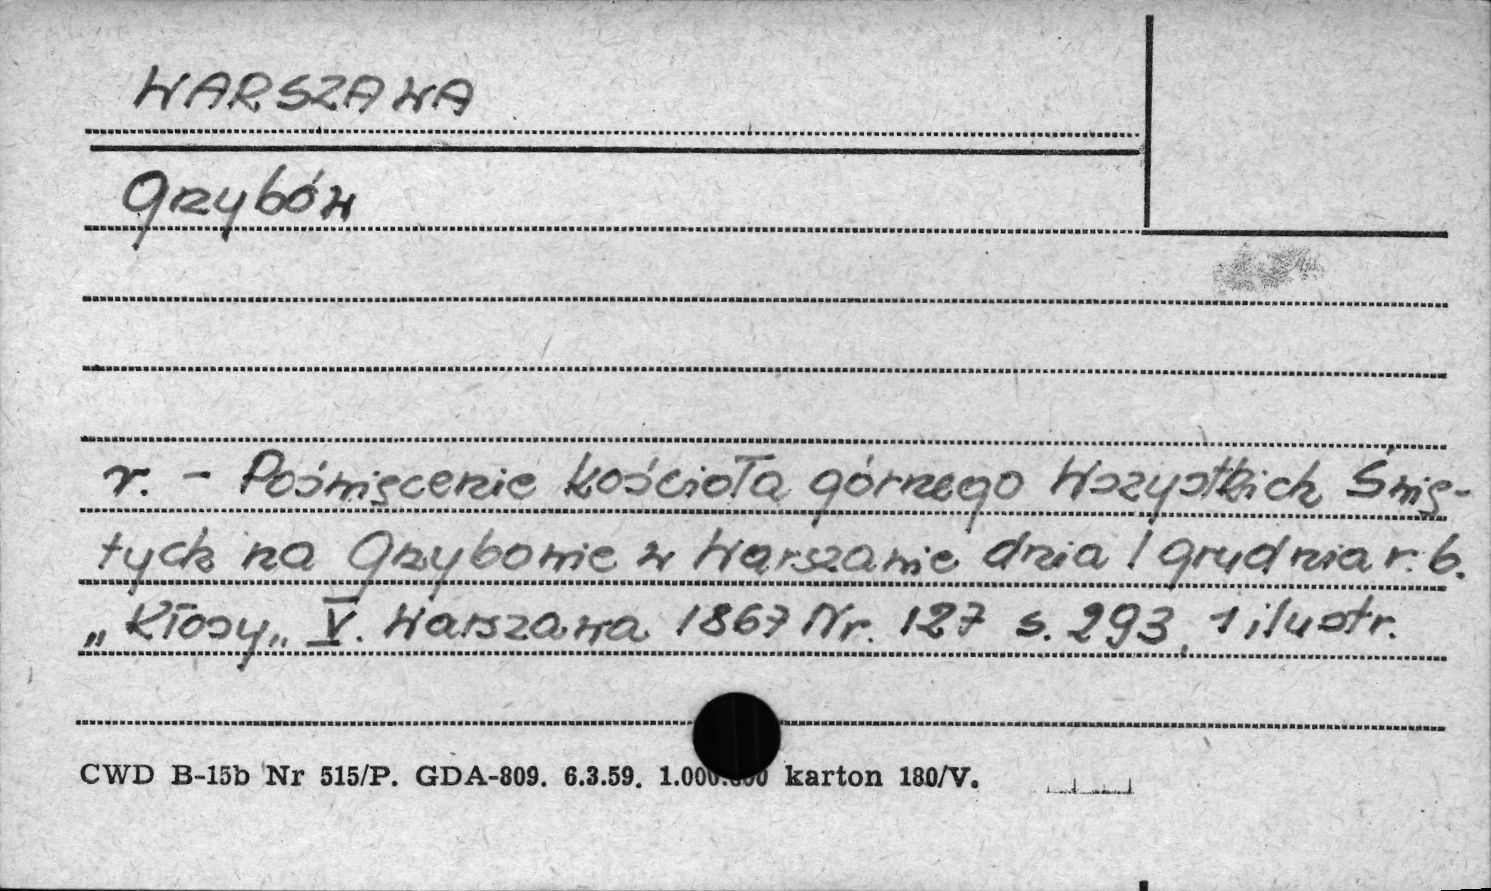 WARSZAWA
Grzybów
r. - Poświęcenie kościoła górnego Wszystkich Świę-
tych na Grzybowie w Warszawie dnia 1 grudnia r. b.
„Kłosy„ V. Warszawa 1867 Nr. 127 s. 293, 1 ilustr.
CWD B-15b Nr 515/P. GDA-809. 6.3.59. 1.000.000 karton 180/V.